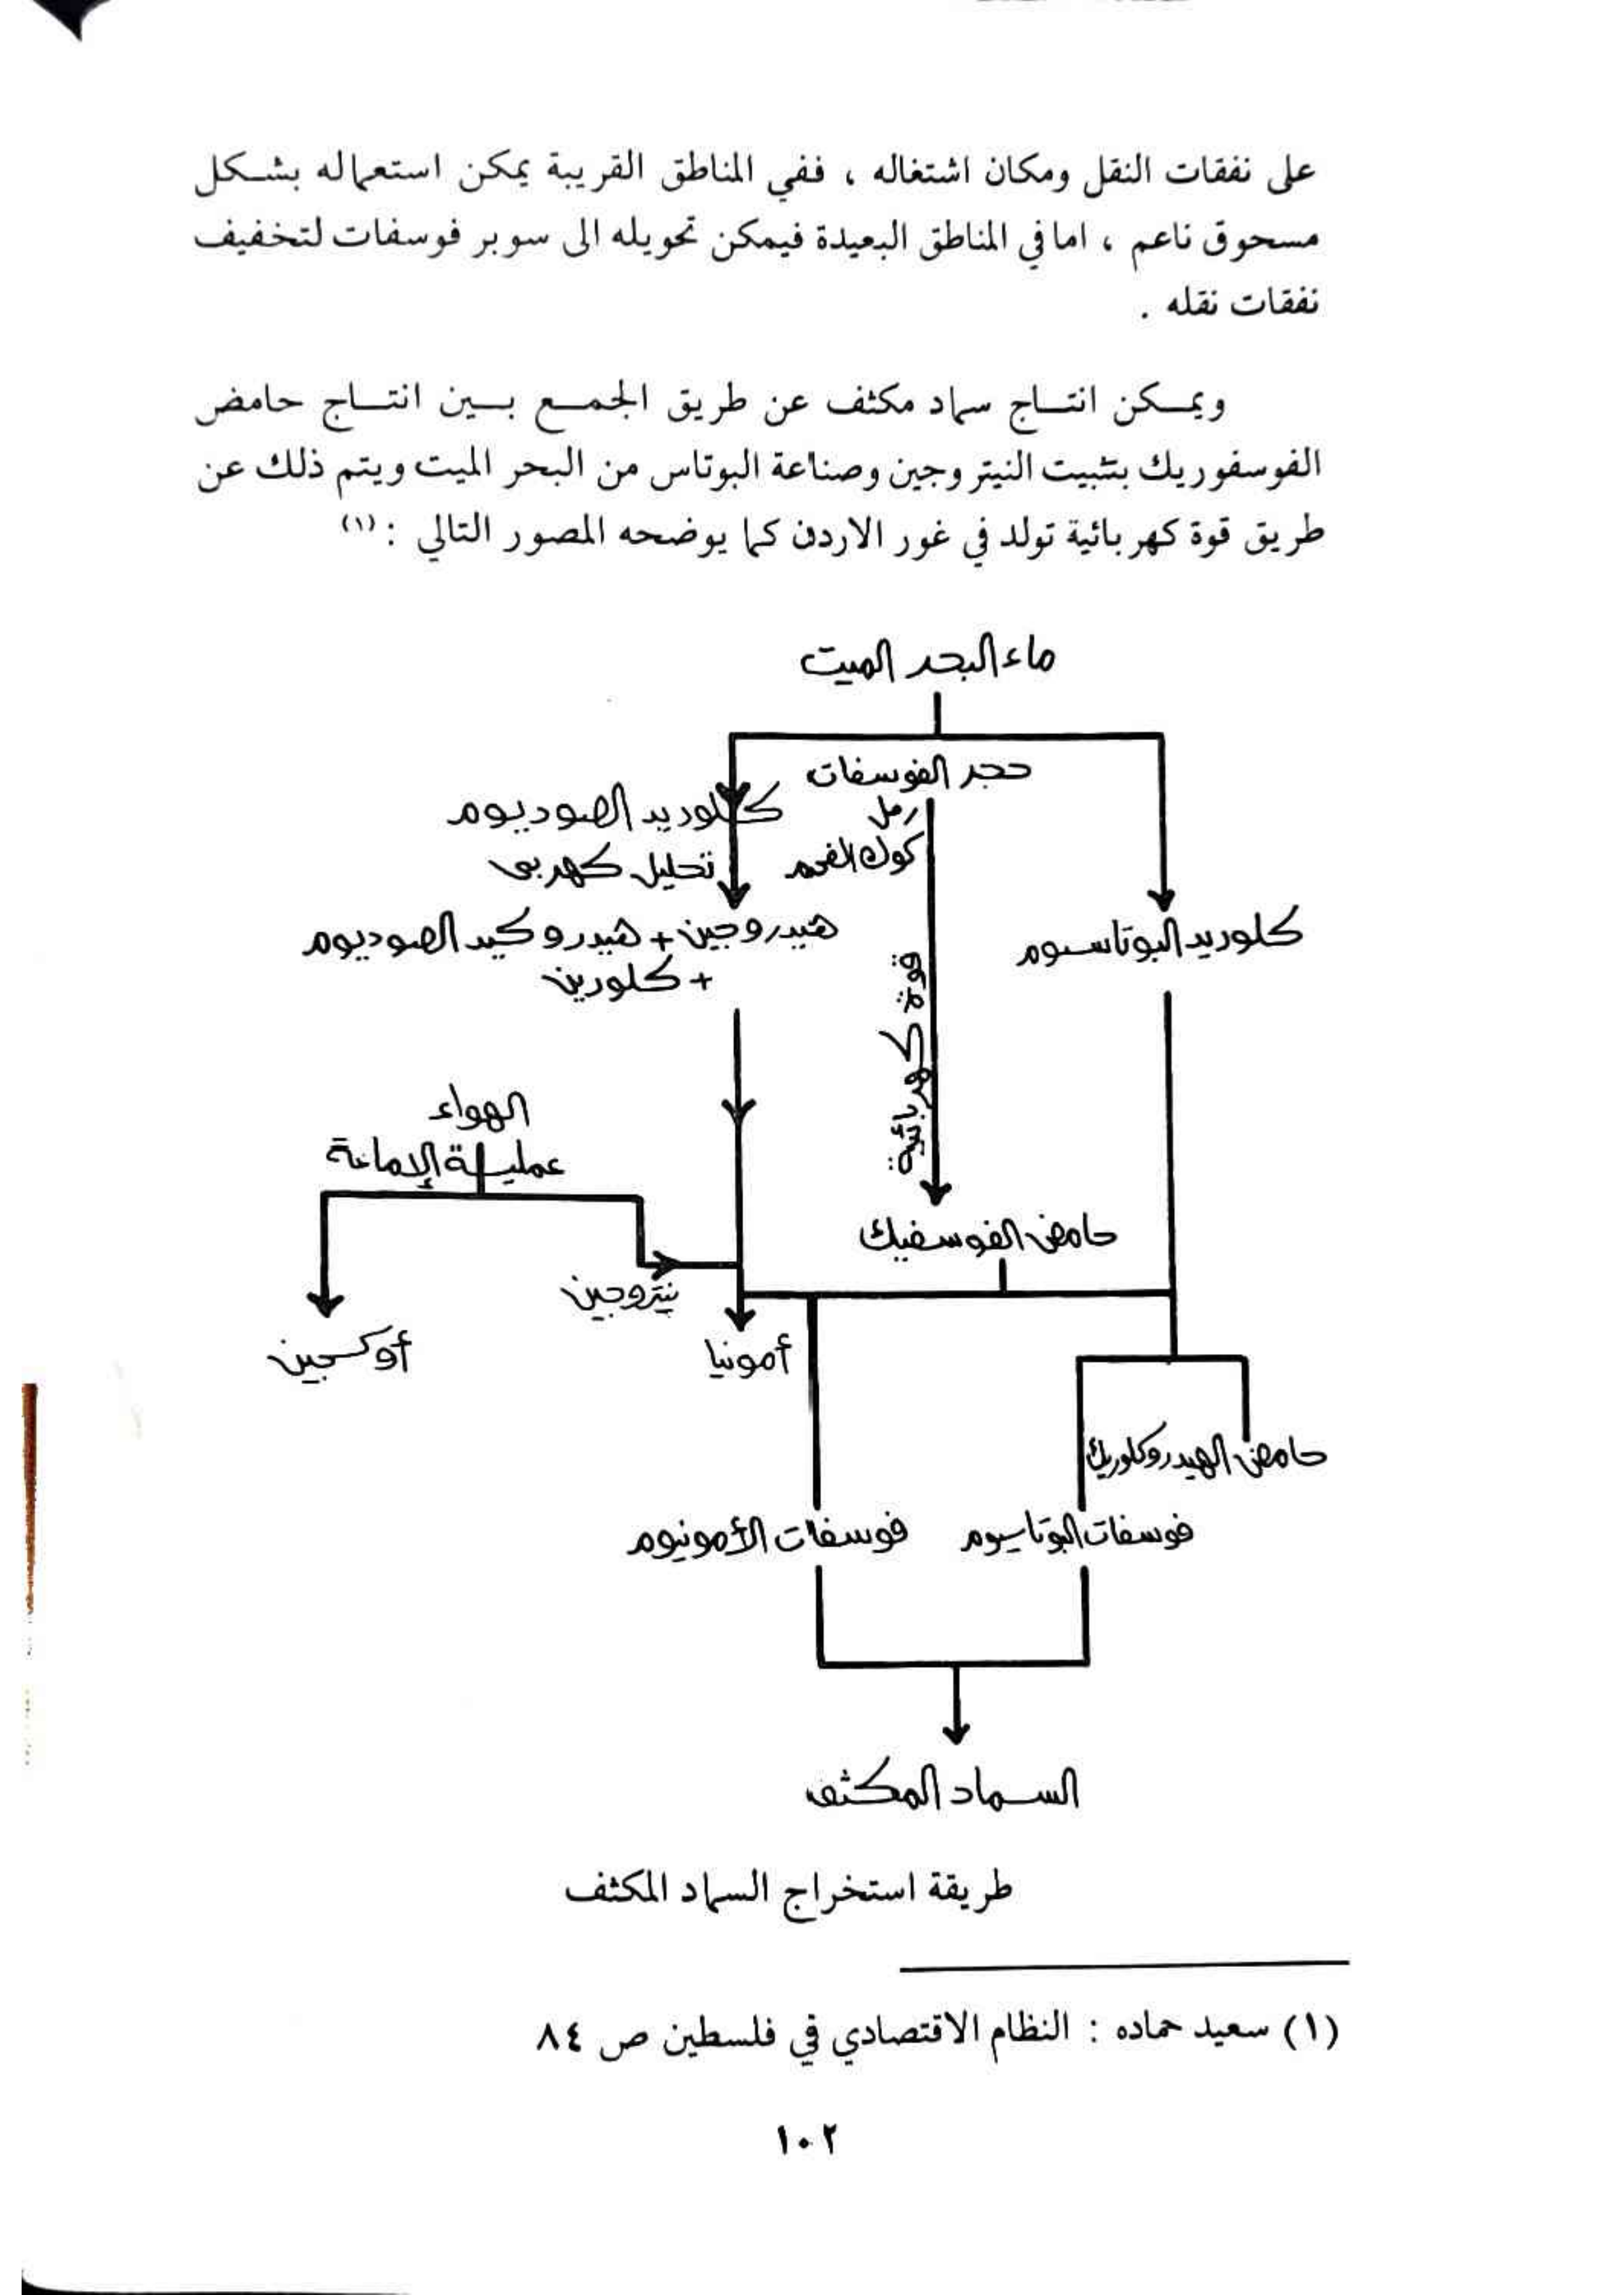 على نفقات النقل ومكان اشتغاله ، ففي المناطق القريبة يمكن استعماله بشكل
مسحوق ناعم ، اما في المناطق البعيدة فيمكن تحويله الى سوبر فوسفات لتخفيف
نفقات نقله .
ويمكن انتاج سماد مكثف عن طريق الجمع بين انتاج حامض
الفوسفوريك بتثبيت النيتروجين وصناعة البوتاس من البحر الميت ويتم ذلك عن
طريق قوة كهربائية تولد في غور الاردن كما يوضحه المصور التالي : (١)
ماء البحر الميت
حجر الفوسفات
رمل
كوك الفحم
قوة كهربائية
كلوريد الصوديوم
تحليل كهربي
هيدروجين + هيدروكيد الصوديوم
+ كلورين
كلوريد البوتاسيوم
الهواء
عملية الإماعة
حامض الفوسفيك
نيتروجين
أوكسجين
أمونيا
حامض الهيدروكلوريك
فوسفات البوتاسيوم
فوسفات الأمونيوم
السماد المكثف
طريقة استخراج السماد المكثف
(١) سعيد حماده : النظام الاقتصادي في فلسطين ص ٨٤
١٠٢